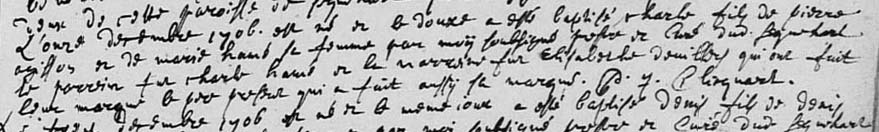 de cette paroisse de
L'onze decembre 1706. est né et le douze a esté baptisé charle fils de pierre
et de marie hans sa femme par moÿ soubsigné prestre et curé dud.
le parrein fut charle hans et la marreine fut Elisabethe qui ont fait
leur marque le pere present qui a fait aussÿ sa marque. Cliquart.
decembre 1706 est né et le meme jour a esté baptisé denis fils de denis
par moi soubsigné prestre et curé dud